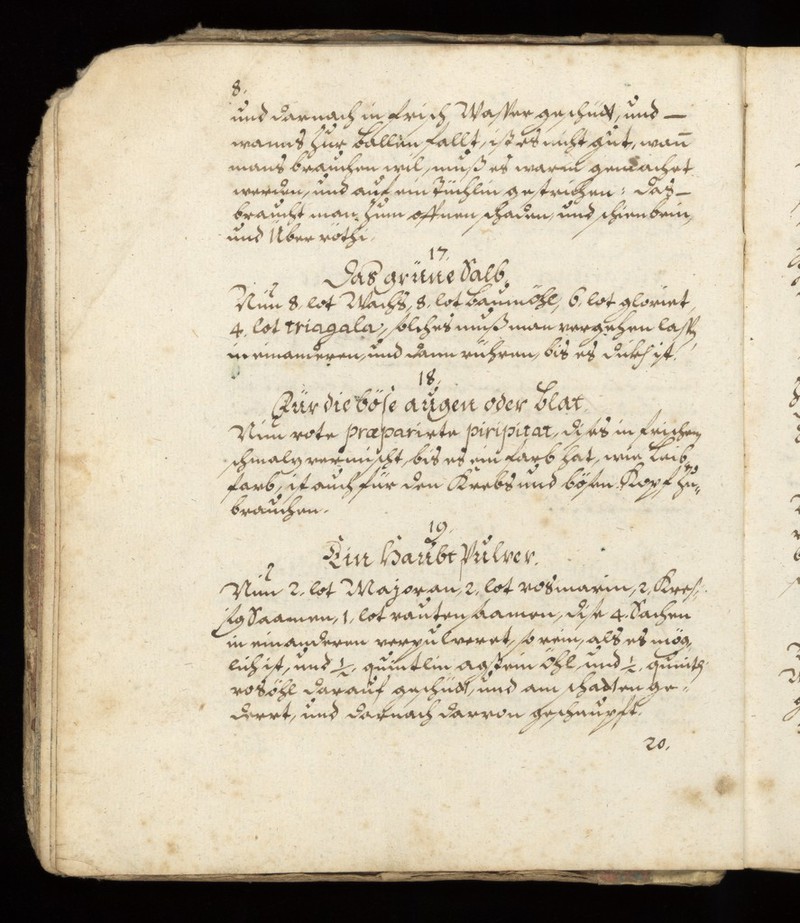 8.
und darnach in frisch Wasser geschütt, und —
wanns zur ballen fallt, ist es nicht gut, wañ
mans brauchen wil, muß es warm gemachet
werden, und auf ein tüchlin gestrichen: das —
braucht man zum offnen schaden, und schienbein,
und Über röthi.
17.
Das grüne Salb.
Nim 8. lot Wachs, 8. lot baumöhl, 6. lot gloriet,
4. lot triagala, solches muß man vergehen lassen
in einanderen, und dann rühren, bis es dick ist.
18.
Für die böse augen oder blat.
Nim rote præparirte piripitat, dises in frischem
schmalz vermischt, bis es ein farb hat, wie leib
farb, ist auch für den Krebs und bösen Kopf zu-
brauchen.
19.
Ein Haubt Pulver.
Nim 2. lot Majoran, 2. lot rosmarin, 2. Kres-
sig Saamen, 1. lot rauten saamen, dise 4. Sachen
in einanderen verpulveret, so rein, als es mög-
lich ist, und ½. quintlin agstein öhl, und ½. quintl.
rosöhl darauf geschütt, und am schatten ge-
derrt, und darnach darvon geschnupft.
20.